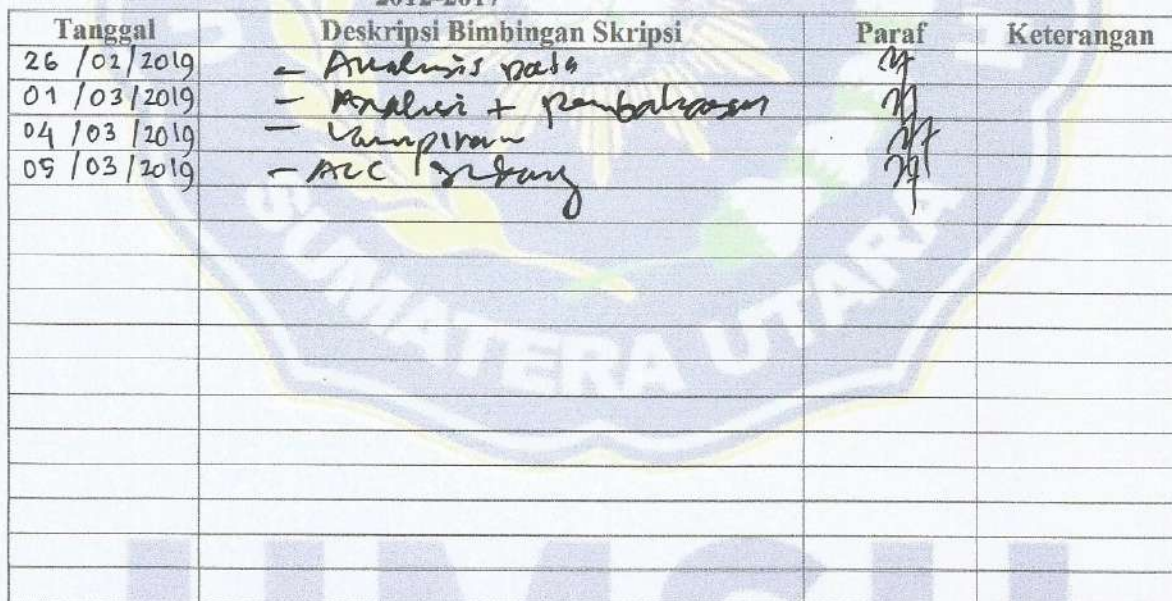 2012-2017
Tanggal Deskripsi Bimbingan Skripsi Paraf Keterangan
26 /02/2019 - Analisis data
01 /03/2019 - Analisi + pembahasan
04 /03 /2019 - Lampiran
05 /03 /2019 - ACC Sidang
SUMATERA UTARA
UMSU